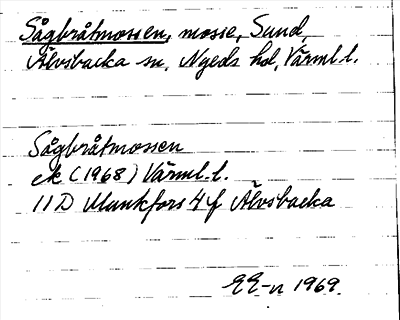 Sågbråtmossen, mosse, Sund,
Älvsbacka sn, Nyeds hd, Värml. l.
Sågbråtmossen
ek (1968) Värml. l.
11D Munkfors 4f Älvsbacka
EE-n 1969.